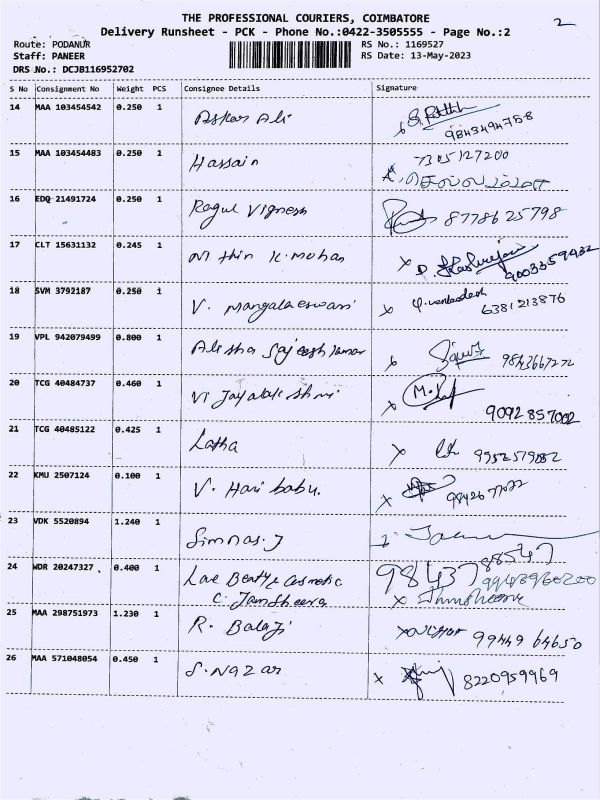 THE PROFESSIONAL COURIERS, COIMBATORE
2
Delivery Runsheet - PCK - Phone No.:0422-3505555 - Page No.:2
Route: PODANUR
RS No.: 1169527
Staff: PANEER
RS Date: 13-May-2023
DRS No.: DCJB116952702
S No Consignment No Weight PCS Consignee Details Signature
14 MAA 103454542 0.250 1 Askar Ali
9843494758
15 MAA 103454483 0.250 1 Hassain 7305127200
16 EDQ 21491724 0.250 1 Ragul Vignesh 8778625798
17 CLT 15631132 0.245 1 Nithin K. Mohan x
9003359432
18 SVM 3792187 0.250 1 V. Mangalaeswari x
6381213876
19 VPL 942079499 0.800 1 Alisha
20 TCG 40484737 0.460 1 Vijayalakshmi x
9092857002
21 TCG 40485122 0.425 1 Latha x
22 KMU 2507124 0.100 1 V. Hari babu. x
23 VDK 5520894 1.240 1 Simnas. J
24 WDR 20247327 0.400 1 Love Beatye Cosmetic 98437 88547
C. Jamsheera x
25 MAA 298751973 1.230 1 R. Balaji 99449 64650
26 MAA 571048054 0.450 1 S. Nazar x 8220959969